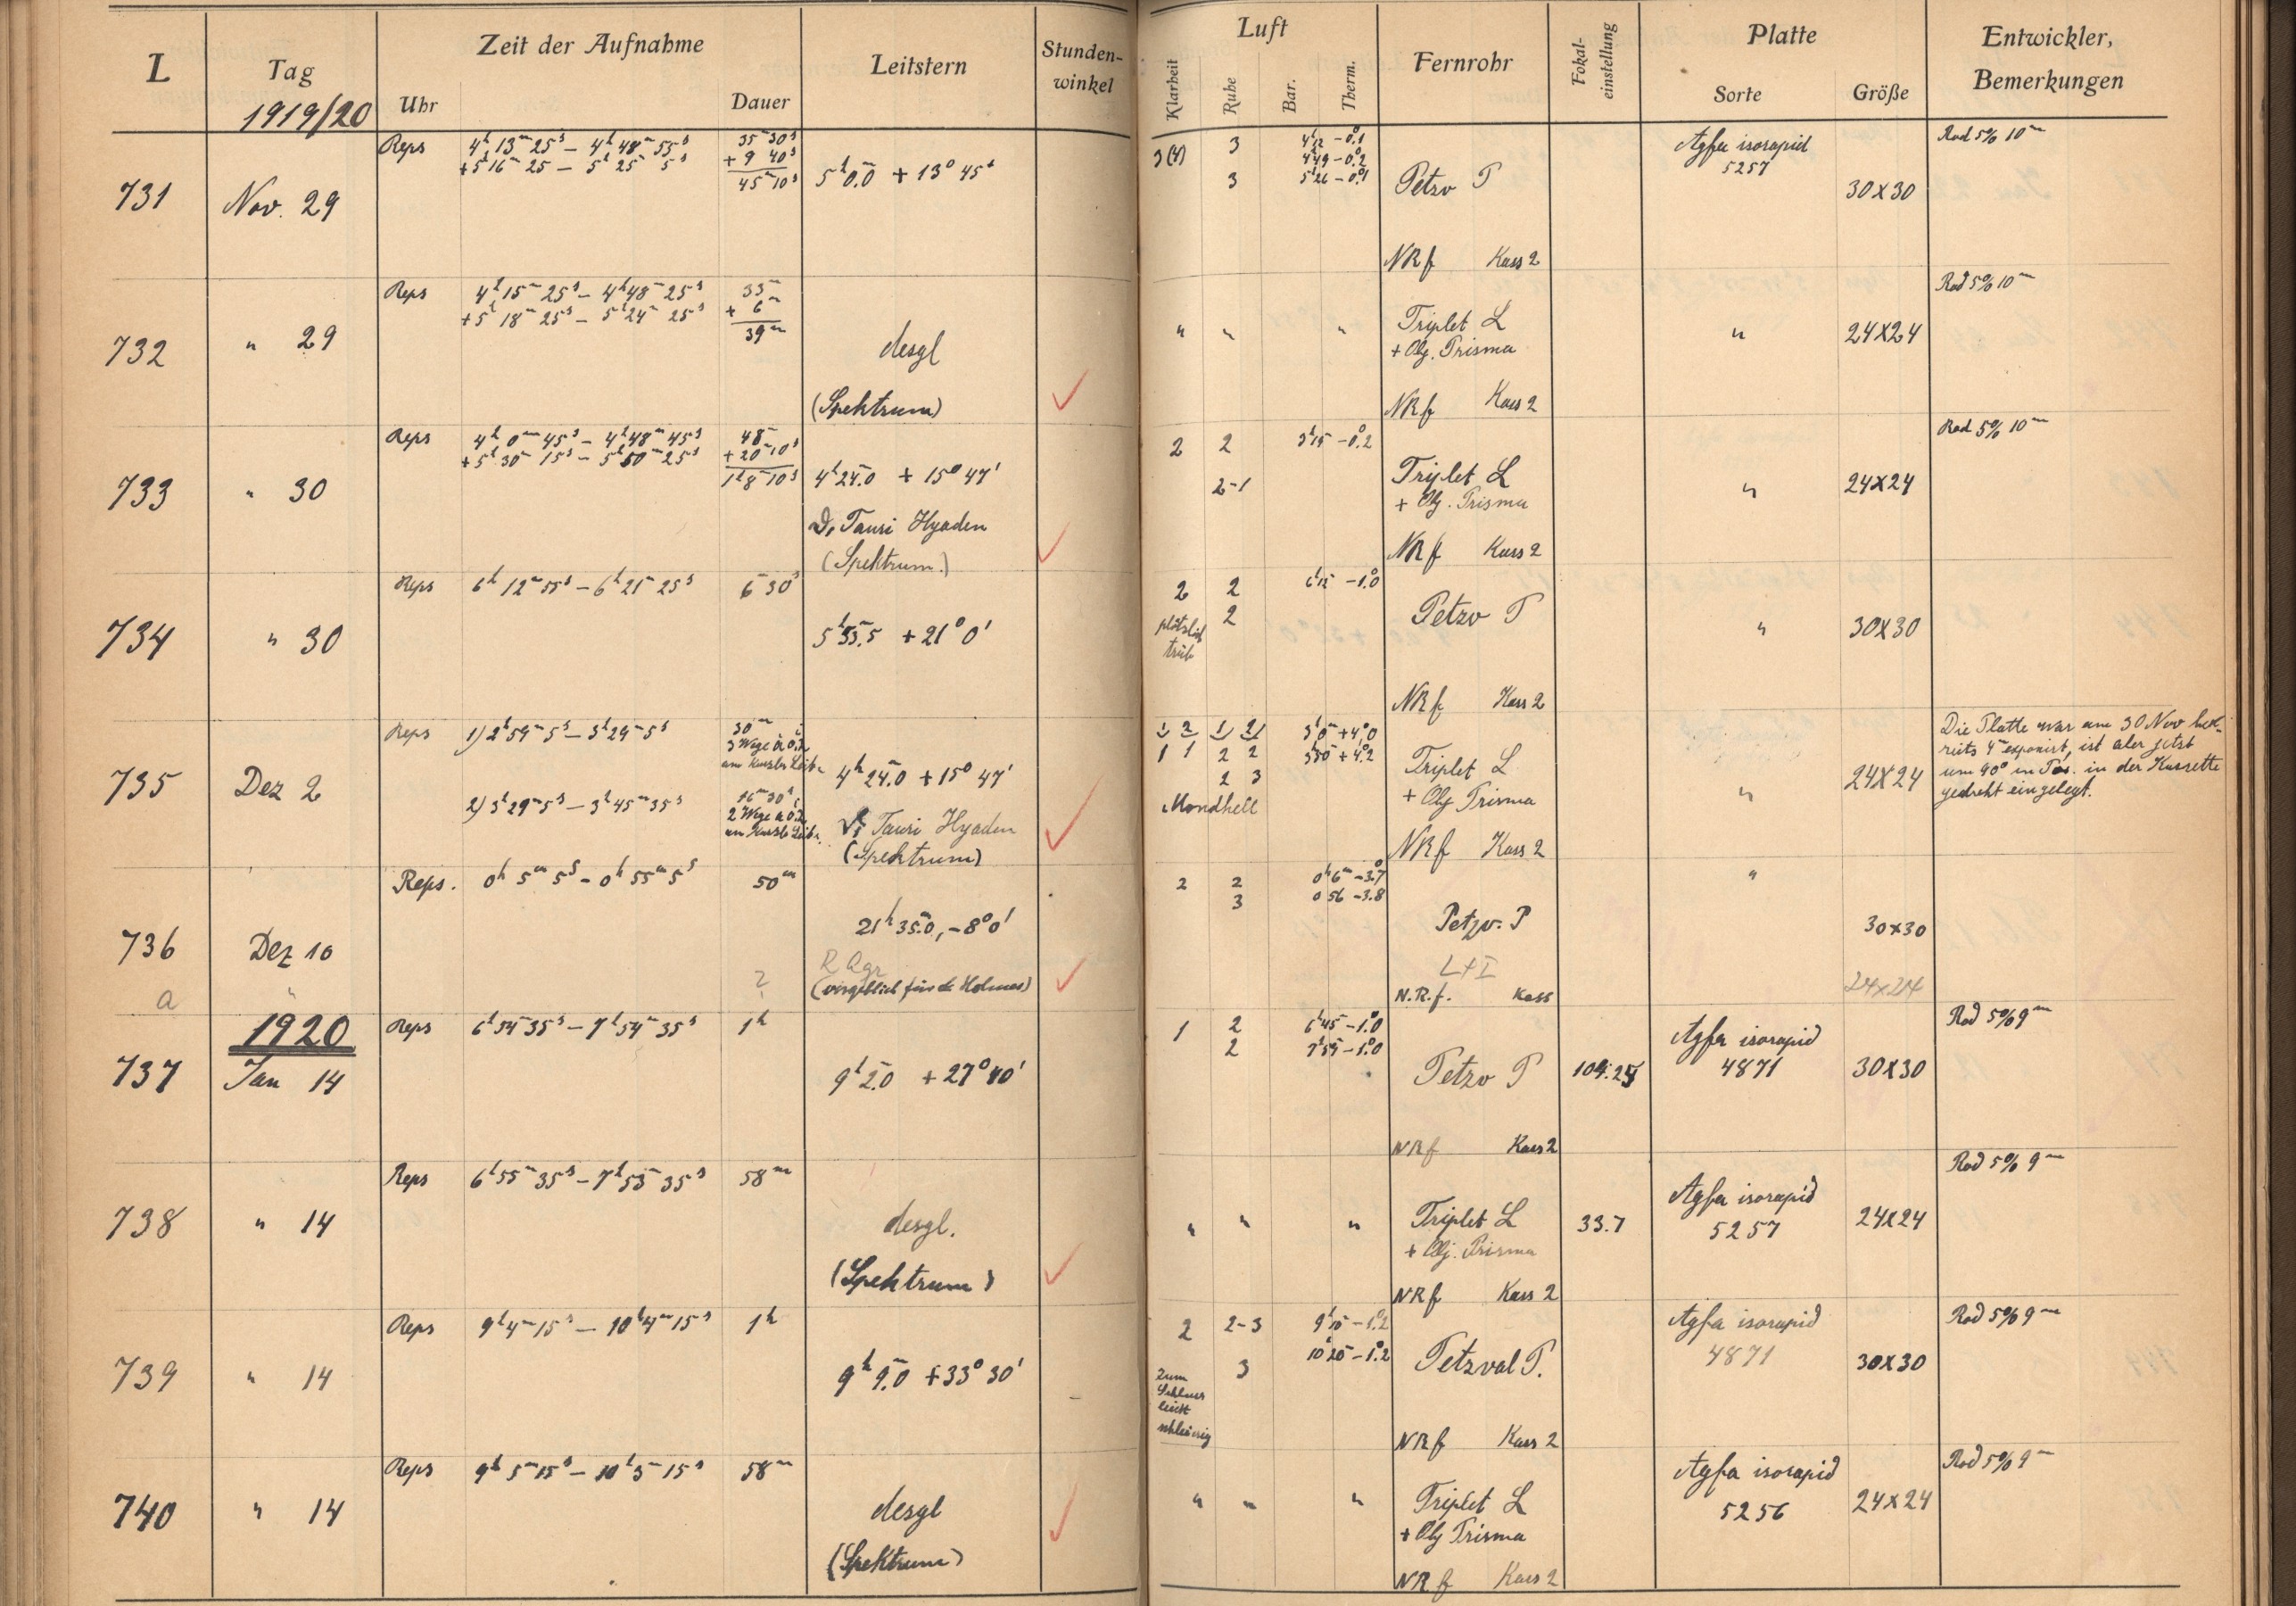 L
Tag
1919/20
Zeit der Aufnahme
Uhr
Dauer
Leitstern
Stunden-
winkel
Luft
Klarheit
Ruhe
Bar.
Therm.
Fernrohr
Fokal-
einstellung
Platte
Sorte
Größe
Entwickler,
Bemerkungen
731
Nov. 29
Reps
4h 13m 25s – 4h 48m 55s
+5h 16m 25 – 5h 25m 5s
35m 30s
+ 9 40s
45m 10s
5h 0m.0 + 13° 45'
3(4)
3
3
4h12 – 0°.1
4h49 – 0°.2
5h26 – 0°.1
Petzv P
NRf Kass 2
Agfa isorapid
5257
30x30
Rod 5% 10m
732
" 29
Reps
4h 15m 25s – 4h 48m 25s
+5h 18m 25s – 5h 24m 25s
33m
+ 6m
39m
desgl
(Spektrum)
" " "
Triplet L
+ Obj. Prisma
NRf Kass 2
"
24x24
Rod 5% 10m
733
" 30
Reps
4h 0m 45s – 4h 48m 45s
+5h 30m 15s – 5h 50m 25s
48m
+ 20m 10s
1h 8m 10s
4h 24m.0 + 15° 47'
ϑ1 Tauri Hyaden
(Spektrum.)
2 2
2-1
3h15 – 0°.2
Triplet L
+ Obj. Prisma
NRf Kass 2
"
24x24
Rod 5% 10m
734
" 30
Reps
6h 12m 55s – 6h 21m 25s
6m 30s
5h 35m.5 + 21° 0'
2 2
2
plötzlich
trüb
6h12 – 1°.0
Petzv P
NRf Kass 2
"
30x30
735
Dez 2
Reps
1) 2h 59m 5s – 3h 29m 5s
2) 3h 29m 5s – 3h 45m 35s
30m
3 Wege
16m 30s
2 Wege
4h 24m.0 + 15° 47'
Tauri Hyaden
(Spektrum)
1 2 1 2
1 1 2 2
2 3
Mondhell
3h0m + 4°.0
3h50 + 4°.2
Triplet L
+ Obj Prisma
NRf Kass 2
"
24x24
Die Platte war am 30 Nov be-
reits 4m exponirt, ist aber jetzt
um 90° in Pos. in der Kassette
gedreht eingelegt.
736
a
Dez 10
"
Reps.
0h 5m 5s – 0h 55m 5s
50m
?
21h 35m.0, – 8° 0'
R Aqr
(vergeblich für de Holmes)
2 2
3
0h 6m – 3°.7
0 56 – 3.8
Petzv. P
L+I
N.R.f. Kass
"
30x30
24x24
1920
737
Jan 14
Reps
6h 54m 35s – 7h 54m 35s
1h
9h 2m.0 + 27° 40'
1 2
2
6h45 – 1°.0
7h55 – 1°.0
Petzv P
NRf Kass 2
109.25
Agfa isorapid
4871
30x30
Rod 5% 9m
738
" 14
Reps
6h 55m 35s – 7h 53m 35s
58m
desgl.
(Spektrum)
" " "
Triplet L
+ Obj. Prisma
NRf Kass 2
33.7
Agfa isorapid
5257
24x24
Rod 5% 9m
739
" 14
Reps
9h 4m 15s – 10h 4m 15s
1h
9h 9m.0 + 33° 30'
2 2-3
3
9h10 – 1°.2
10h20 – 1°.2
zum
Schluss
leicht
schleierig
Petzval P.
NRf Kass 2
Agfa isorapid
4871
30x30
Rod 5% 9m
740
" 14
Reps
9h 5m 15s – 10h 3m 15s
58m
desgl
(Spektrum)
" " "
Triplet L
+ Obj Prisma
NRf Kass 2
Agfa isorapid
5256
24x24
Rod 5% 9m